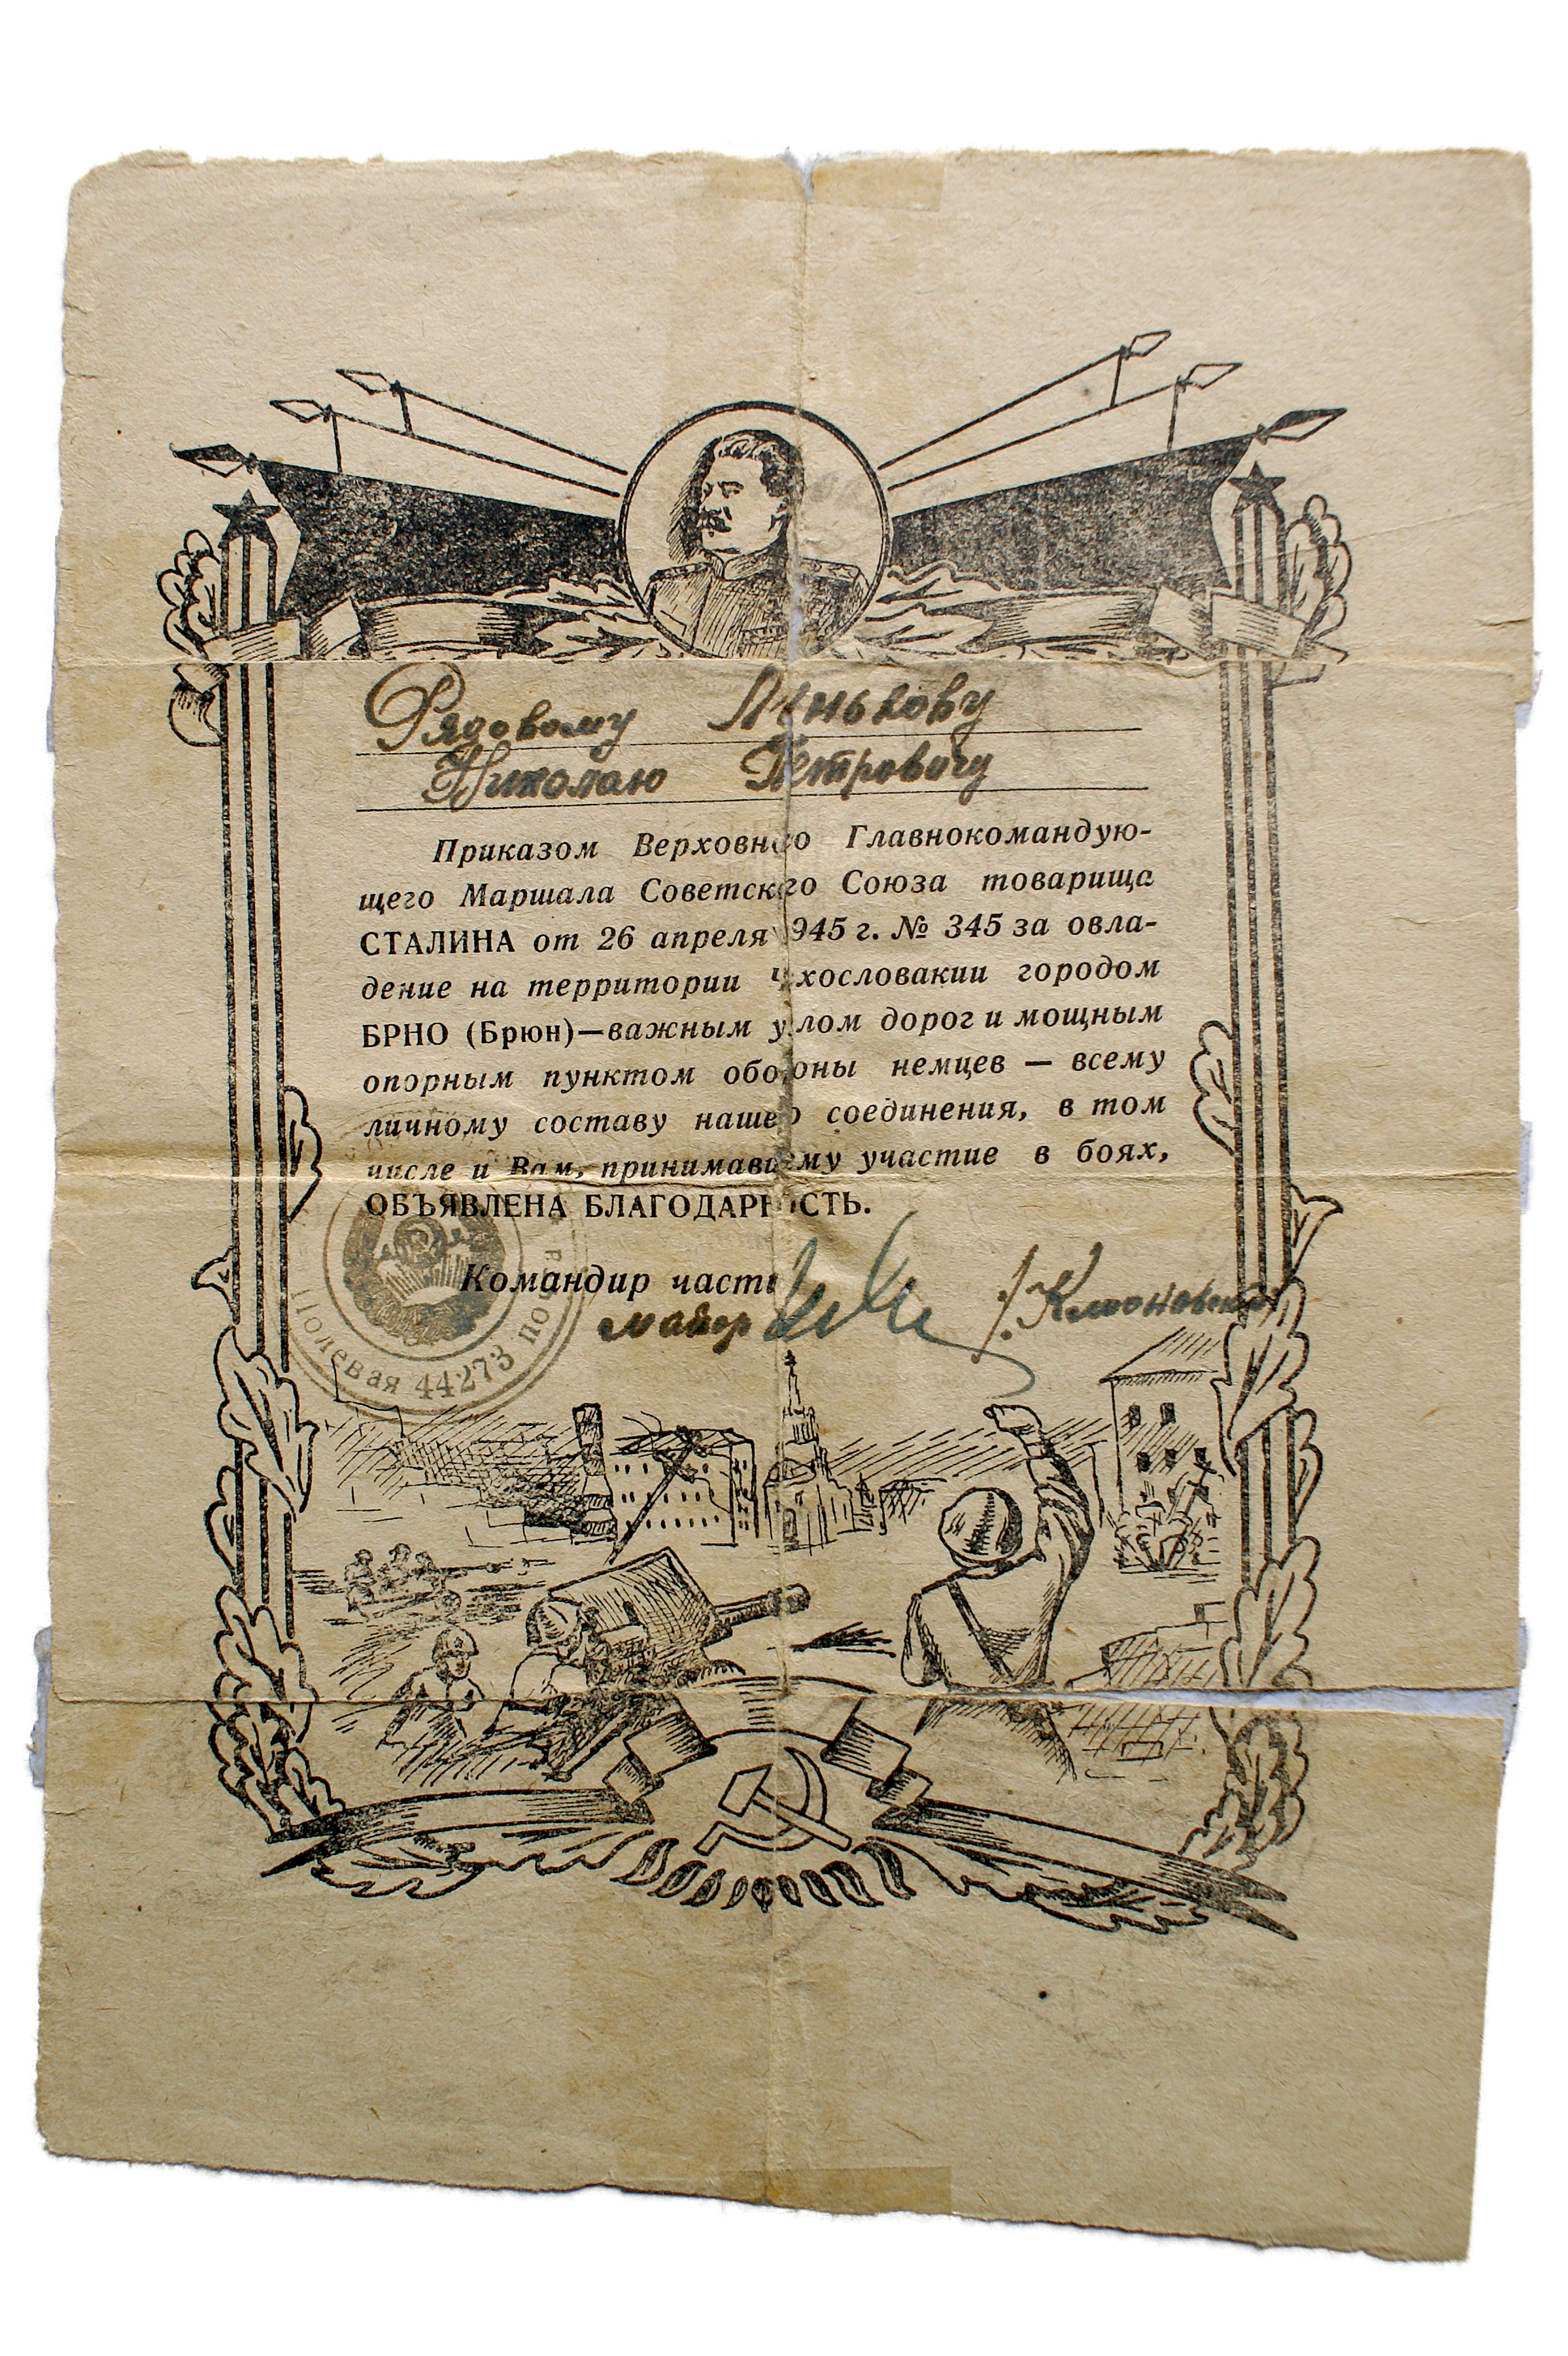 Рядовому Пенькову
Николаю Петровичу
Приказом Верховного Главнокомандую-
щего Маршала Советского Союза товарища
СТАЛИНА от 26 апреля 1945 г. № 345 за овла-
дение на территории Чехословакии городом
БРНО (Брюн)—важным узлом дорог и мощным
опорным пунктом обороны немцев — всему
личному составу нашего соединения, в том
числе и Вам, принимавшему участие в боях,
ОБЪЯВЛЕНА БЛАГОДАРНОСТЬ.
Командир части
майор
Полевая почта 44273